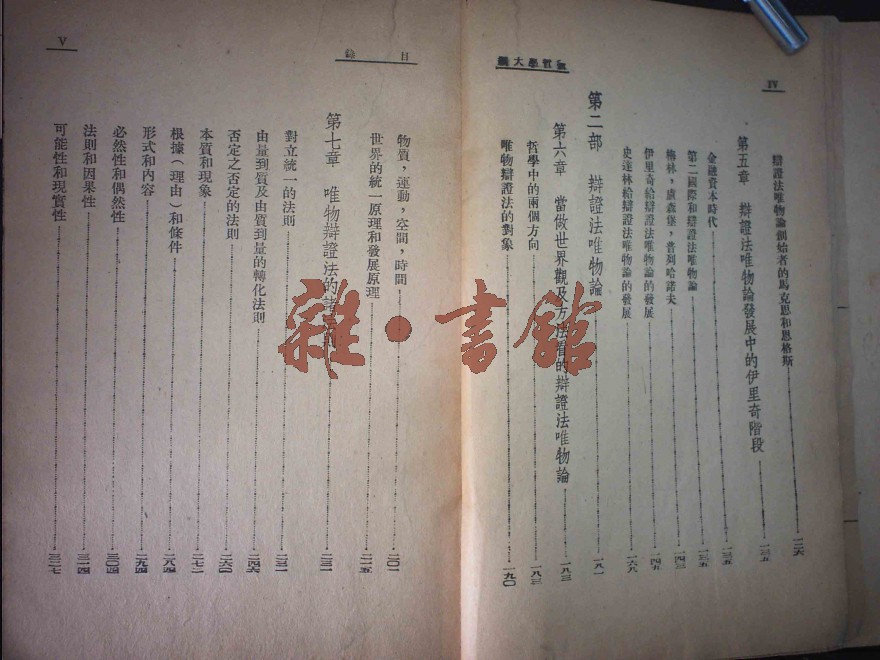 IV
新哲學大綱
辯證法唯物論創始者的馬克思和恩格斯 一二六
第五章 辯證法唯物論發展中的伊里奇階段 一三五
金融資本時代 一三五
第二國際和辯證法唯物論 一三五
梅林，盧森堡，普列哈諾夫 一四三
伊里奇給辯證法唯物論的發展 一四五
史達林給辯證法唯物論的發展 一六八
第二部 辯證法唯物論 一八一
第六章 當做世界觀及方法看的辯證法唯物論 一八三
哲學中的兩個方向 一八三
唯物辯證法的對象 一九〇
目錄
V
物質，運動，空間，時間 二〇一
世界的統一原理和發展原理 二一五
第七章 唯物辯證法的諸法則 二三一
對立統一的法則 二三一
由量到質及由質到量的轉化法則 二四六
否定之否定的法則 二六〇
本質和現象 二七二
根據（理由）和條件 二八四
形式和內容 二九四
必然性和偶然性 三〇四
法則和因果性 三一四
可能性和現實性 三二七
雜·書館